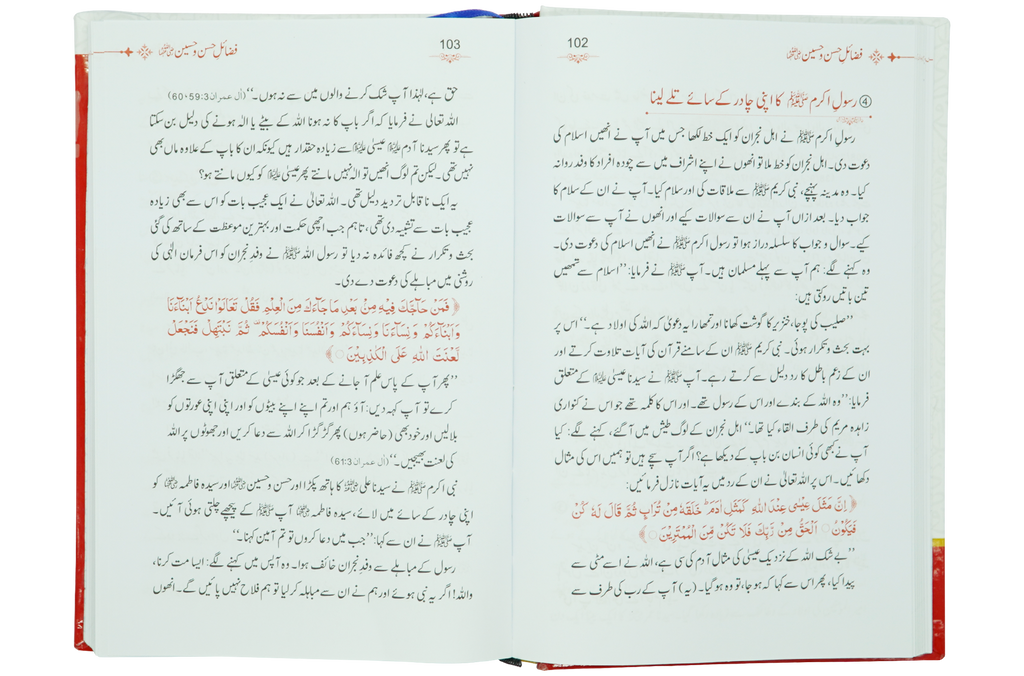 فضائلِ حسن و حسین رضی اللہ عنہما
102
④ رسولِ اکرم ﷺ کا اپنی چادر کے سائے تلے لینا
رسولِ اکرم ﷺ نے اہل نجران کو ایک خط لکھا جس میں آپ نے انھیں اسلام کی
دعوت دی۔ اہل نجران کو خط ملا تو انھوں نے اپنے اشراف میں سے چودہ افراد کا وفد روانہ
کیا۔ وہ مدینہ پہنچے، نبی کریم ﷺ سے ملاقات کی اور سلام کیا۔ آپ نے ان کے سلام کا
جواب دیا۔ بعد ازاں آپ نے ان سے سوالات کیے اور انھوں نے آپ سے سوالات
کیے۔ سوال و جواب کا سلسلہ دراز ہوا تو رسول اکرم ﷺ نے انھیں اسلام کی دعوت دی۔
وہ کہنے لگے: ہم آپ سے پہلے مسلمان ہیں۔ آپ ﷺ نے فرمایا: ’’اسلام سے تمھیں
تین باتیں روکتی ہیں:
’’صلیب کی پوجا، خنزیر کا گوشت کھانا اور تمھارا یہ دعویٰ کہ اللہ کی اولاد ہے۔‘‘ اس پر
بہت بحث و تکرار ہوئی۔ نبی کریم ﷺ ان کے سامنے قرآن کی آیات تلاوت کرتے اور
ان کے زعم باطل کا رد دلیل سے کرتے رہے۔ آپ ﷺ نے سیدنا عیسیٰ علیہ السلام کے متعلق
فرمایا: ’’وہ اللہ کے بندے اور اس کے رسول تھے۔ اور اس کا کلمہ تھے جو اس نے کنواری
زاہدہ مریم کی طرف القاء کیا تھا۔‘‘ اہل نجران کے لوگ طیش میں آ گئے، کہنے لگے: کیا
آپ نے کبھی کوئی انسان بن باپ کے دیکھا ہے؟ اگر آپ سچے ہیں تو ہمیں اس کی مثال
دکھائیں۔ اس پر اللہ تعالیٰ نے ان کے رد میں یہ آیات نازل فرمائیں:
﴿ اِنَّ مَثَلَ عِيْسٰى عِنْدَ اللّٰهِ كَمَثَلِ اٰدَمَ ؕ خَلَقَهٗ مِنْ تُرَابٍ ثُمَّ قَالَ لَهٗ كُنْ
فَيَكُوْنُ ۝ اَلْحَقُّ مِنْ رَّبِّكَ فَلَا تَكُنْ مِّنَ الْمُمْتَرِيْنَ ۝ ﴾
’’بے شک اللہ کے نزدیک عیسیٰ کی مثال آدم کی سی ہے، اللہ نے اسے مٹی سے
پیدا کیا، پھر اس سے کہا کہ ہو جا، تو وہ ہو گیا۔ (یہ) آپ کے رب کی طرف سے
فضائلِ حسن و حسین رضی اللہ عنہما
103
حق ہے، لہٰذا آپ شک کرنے والوں میں سے نہ ہوں۔‘‘ (آل عمران 59:3، 60)
اللہ تعالیٰ نے فرمایا کہ اگر باپ کا نہ ہونا اللہ کے بیٹے یا الٰہ ہونے کی دلیل بن سکتا
ہے تو پھر سیدنا آدم علیہ السلام عیسیٰ علیہ السلام سے زیادہ حقدار ہیں کیونکہ ان کا باپ کے علاوہ ماں بھی
نہیں تھی۔ لیکن تم لوگ انھیں تو الٰہ نہیں مانتے پھر عیسیٰ علیہ السلام کو کیوں مانتے ہو؟
یہ ایک ناقابل تردید دلیل تھی۔ اللہ تعالیٰ نے ایک عجیب بات کو اس سے بھی زیادہ
عجیب بات سے تشبیہ دی تھی، تاہم جب اچھی حکمت اور بہترین موعظت کے ساتھ کی گئی
بحث و تکرار نے کچھ فائدہ نہ دیا تو رسول اللہ ﷺ نے وفد نجران کو اس فرمانِ الٰہی کی
روشنی میں مباہلے کی دعوت دے دی۔
﴿ فَمَنْ حَآجَّكَ فِيْهِ مِنْۢ بَعْدِ مَا جَآءَكَ مِنَ الْعِلْمِ فَقُلْ تَعَالَوْا نَدْعُ اَبْنَآءَنَا
وَاَبْنَآءَكُمْ وَنِسَآءَنَا وَنِسَآءَكُمْ وَاَنْفُسَنَا وَاَنْفُسَكُمْ ۟ ثُمَّ نَبْتَهِلْ فَنَجْعَلْ
لَّعْنَتَ اللّٰهِ عَلَى الْكٰذِبِيْنَ ۝ ﴾
’’پھر آپ کے پاس علم آ جانے کے بعد جو کوئی عیسیٰ کے متعلق آپ سے جھگڑا
کرے تو آپ کہہ دیں: آؤ ہم اور تم اپنے اپنے بیٹوں کو اور اپنی اپنی عورتوں کو
بلا لیں اور خود بھی (حاضر ہوں) پھر گڑگڑا کر اللہ سے دعا کریں اور جھوٹوں پر اللہ
کی لعنت بھیجیں۔‘‘ (آل عمران 61:3)
نبی اکرم ﷺ نے سیدنا علی رضی اللہ عنہ کا ہاتھ پکڑا اور حسن و حسین رضی اللہ عنہما اور سیدہ فاطمہ رضی اللہ عنہا کو
اپنی چادر کے سائے میں لائے، سیدہ فاطمہ رضی اللہ عنہا آپ ﷺ کے پیچھے چلتی ہوئی آئیں۔
آپ ﷺ نے ان سے کہا: ’’جب میں دعا کروں تو تم آمین کہنا۔‘‘
رسول کے مباہلے سے وفد نجران خائف ہوا۔ وہ آپس میں کہنے لگے: ایسا مت کرنا،
واللہ! اگر یہ نبی ہوئے اور ہم نے ان سے مباہلہ کر لیا تو ہم فلاح نہیں پائیں گے۔ انھوں